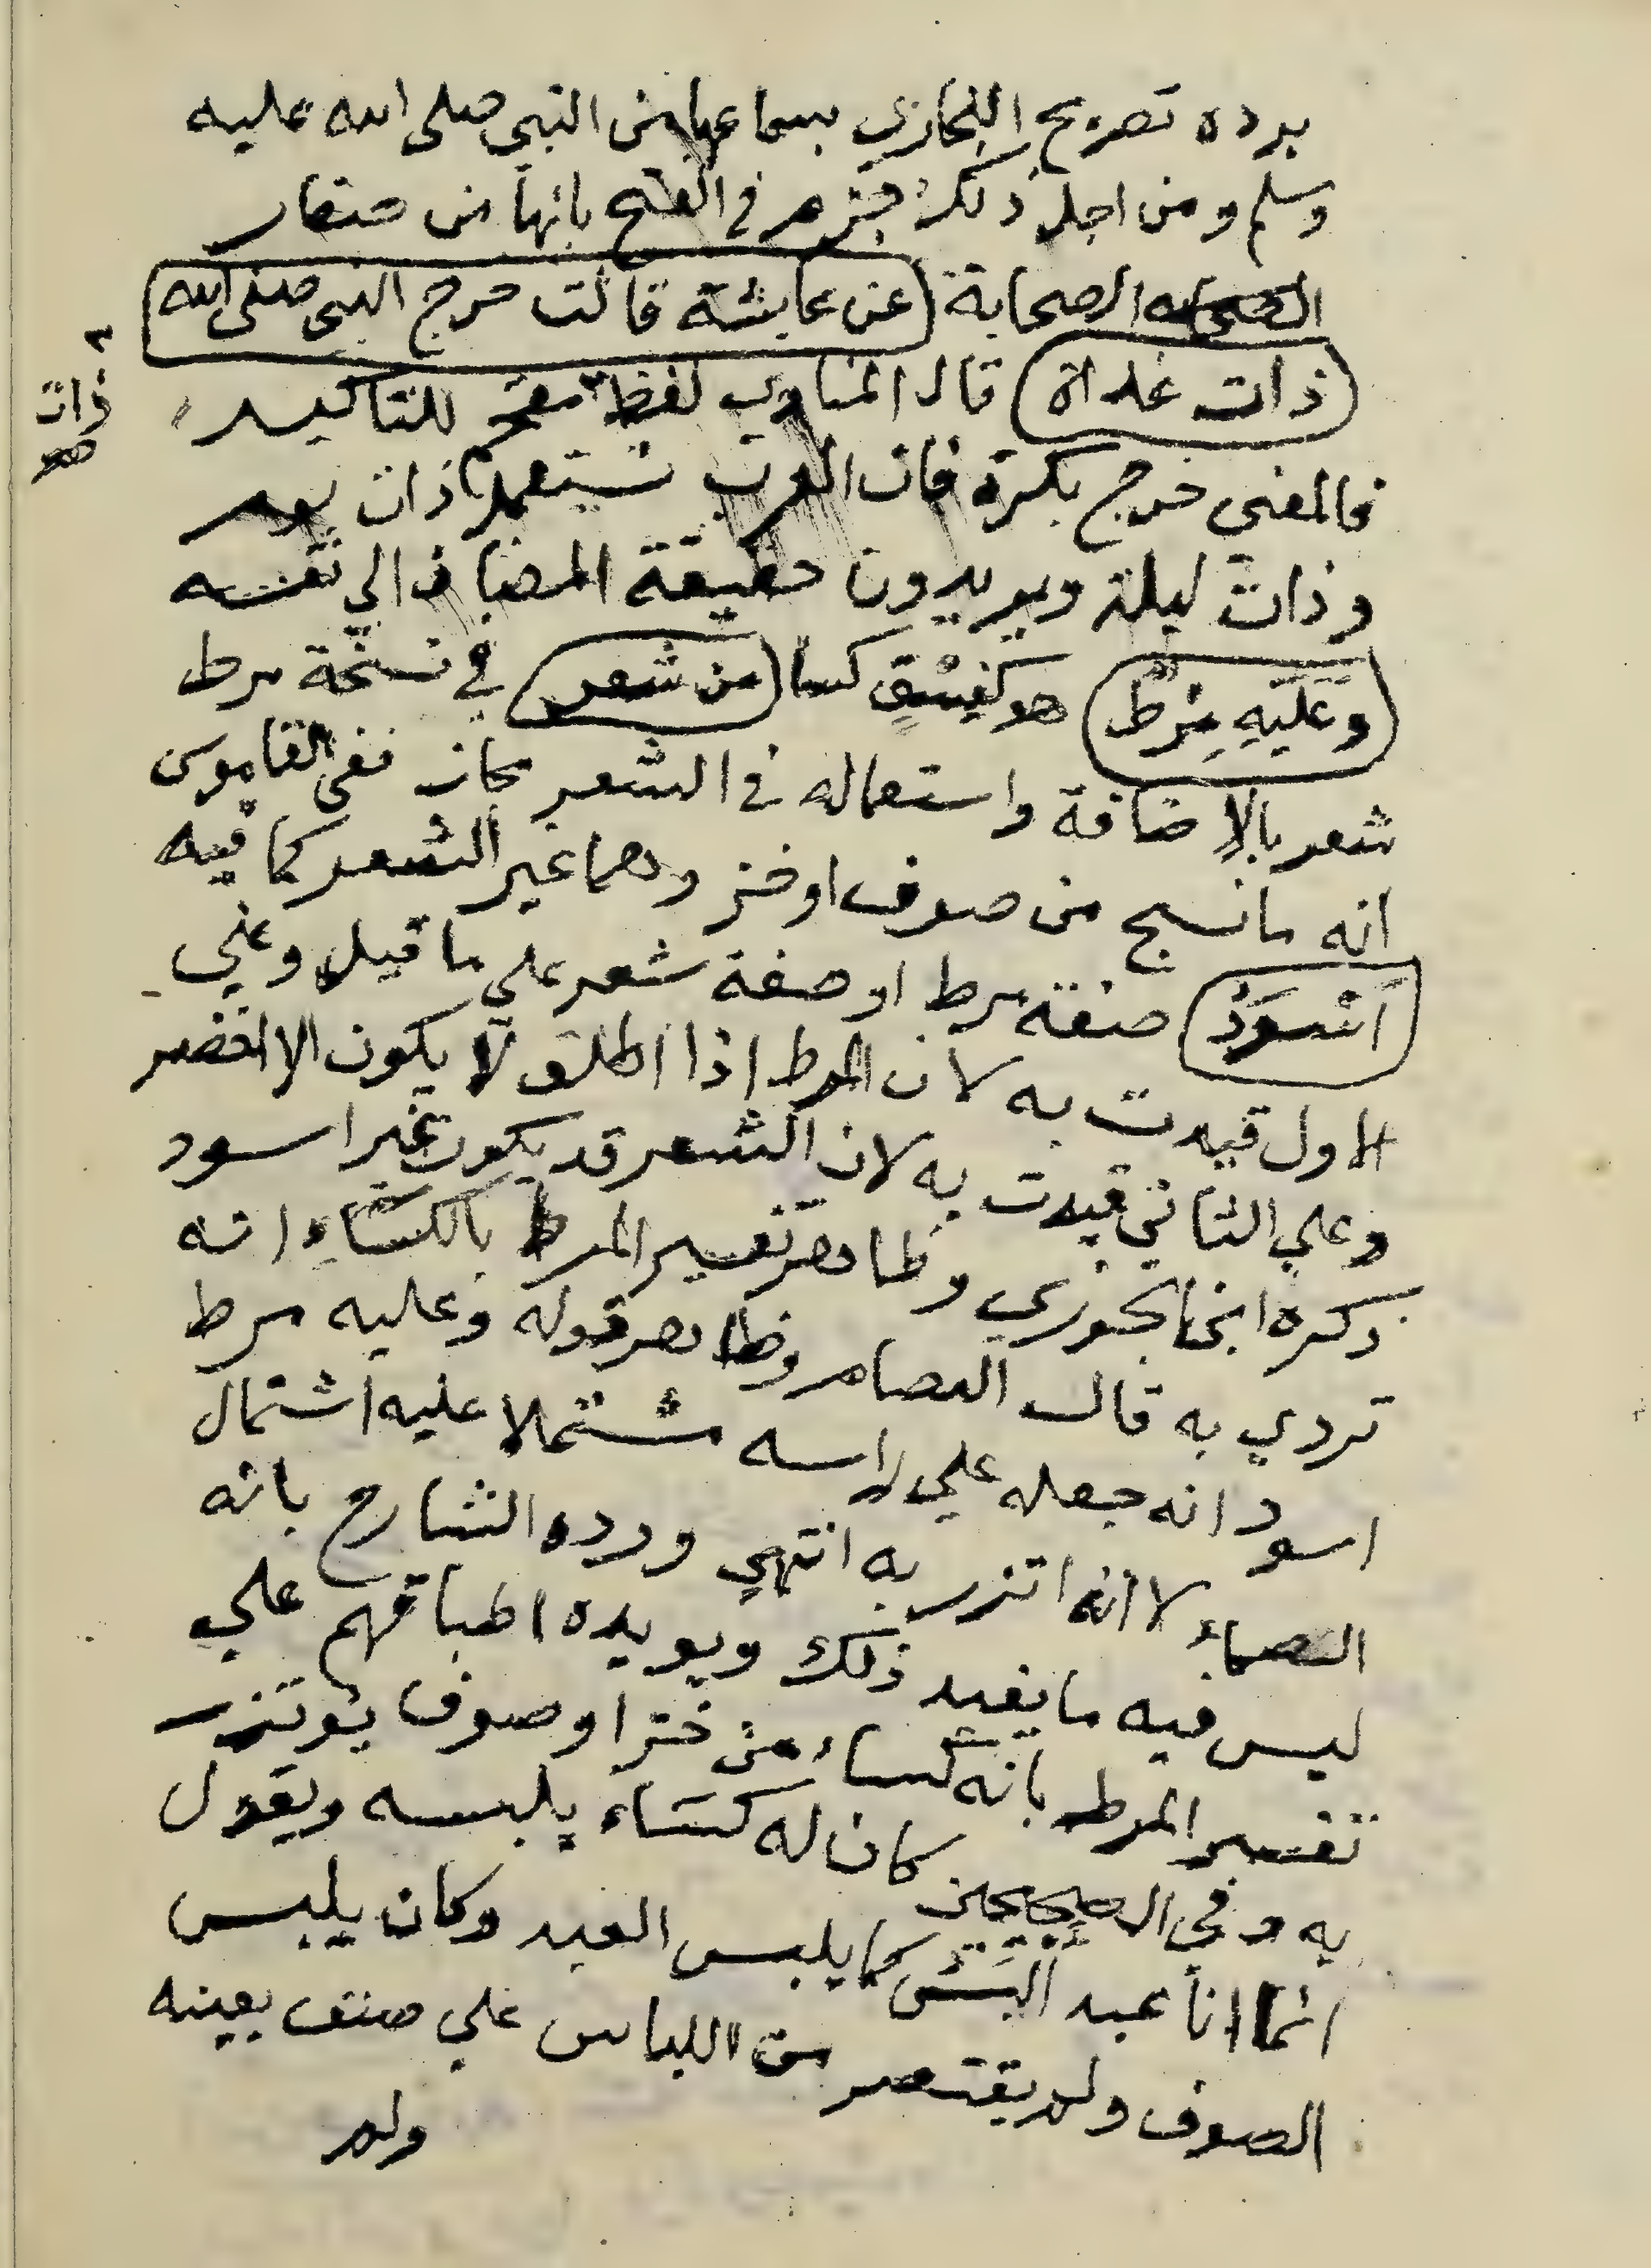 يرده تصريح البخاري بسماعها من النبي صلى الله عليه
وسلم ومن اجل ذلك جزم في الفتح بانها من صغار
الصحابه الصحابة (عن عايشة قالت خرج النبي صلى الله
ذات غداة) قال المناوي لفظ ٢ مقحم للتاكيد
٢ ذات صح
فالمعني خرج بكرة فان العرب تستعمل ذات يوم
وذات ليلة ويريدون حقيقة المضاف الي نفسه
(وَعَلَيْهِ مِرْطٌ) هو كفِسْقٍ كسا (من شعر) في نسخة مرط
شعر بالاضافة واستعماله في الشعر مجاز ففي القاموس
انه ما نسج من صوف او خز وهما غير الشعر كما فيه
(اَسْوَدُ) صفة مرط او صفة شعر علي ما قيل وعلي
الاول قيدت به لان المرط اذا اطلق لا يكون الا اخضر
وعلي الثاني قيدت به لان الشعر قد يكون غير اسود
ذكره ابن الجوزي وظاهر تفسير المرط بالكساء انه
تردي به قال العصام وظاهر قوله وعليه مرط
اسود انه جعله علي راسه مشتملا عليه اشتمال
الصماء لا انه اتزر به انتهي ورده الشارح بانه
ليس فيه ما يفيد ذلك ويويده اطباقهم علي
تفسير المرط بانه كساء من خز او صوف يوتزر
به وفي الصحيحين كان له كساء يلبسه ويقول
انما انا عبد البس كما يلبس العبد وكان يلبس
الصوف ولم يقتصر من اللباس علي صنف بعينه
ولم